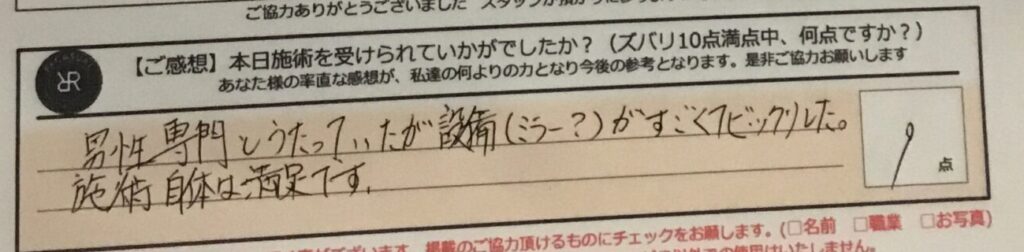 ご協力ありがとうございました
RR
【ご感想】本日施術を受けられていかがでしたか？（ズバリ10点満点中、何点ですか？）
あなた様の率直な感想が、私達の何よりの力となり今後の参考となります。是非ご協力お願いします
男性専門とうたっていたが設備(ミラー?)がすごくてビックリした。
施術自体は満足です。
9
点
掲載のご協力頂けるものにチェックをお願します。(□名前 □職業 □お写真)
の使用はいたしません。